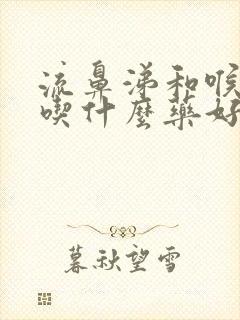 流鼻涕和喉
喫什麼藥好
暮秋望雪